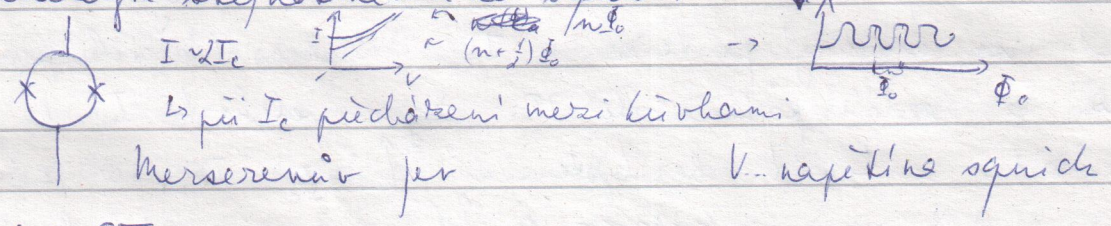 I ~ 2I_c I V nΦ₀ (n+½)Φ₀ → Φ₀ Φ₀
↳ při I_c přecházení mezi křivkami
Merserenův jev V... napětí na squidu